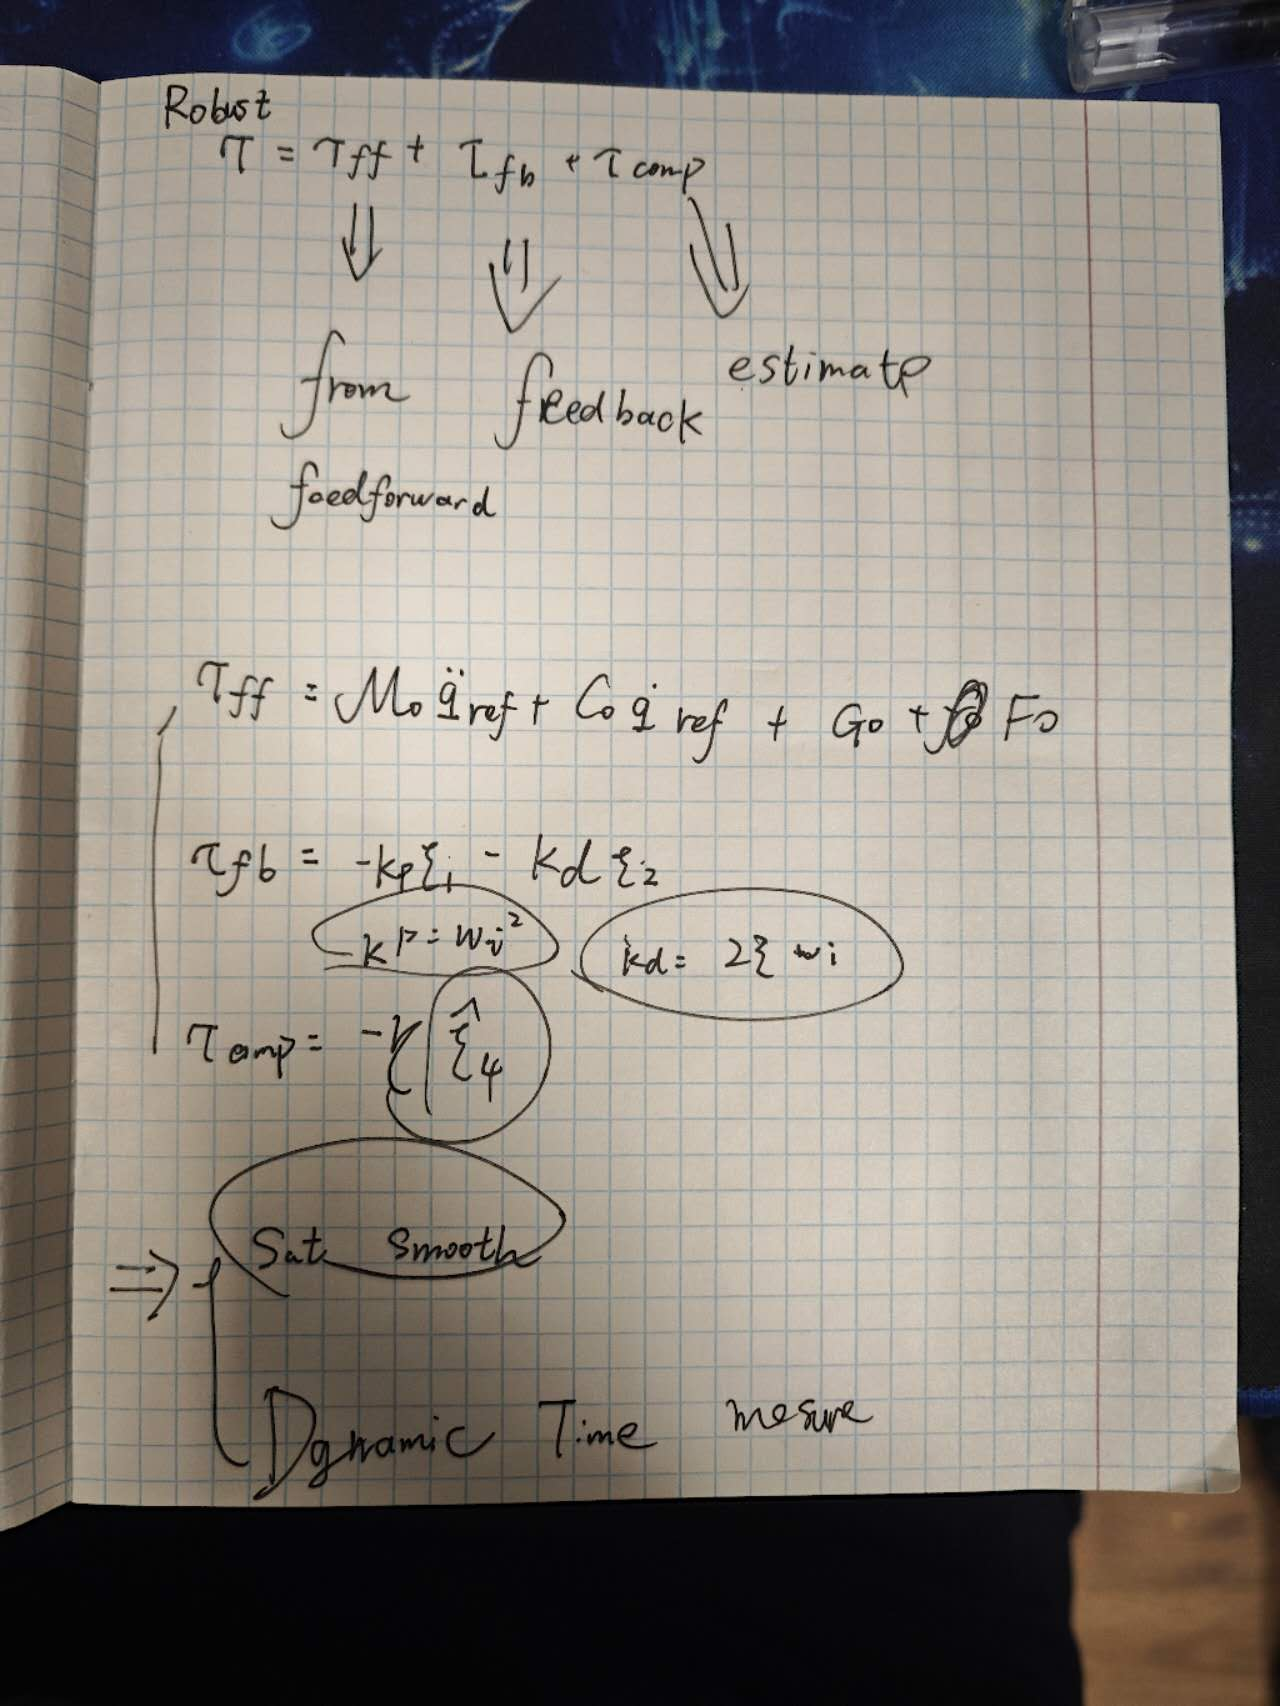 Robust
τ = τff + τfb + τcomp
⇓ ⇓ ⇓
from feedback estimate
feedforward
τff = M₀ q̈ref + C₀ q̇ref + G₀ + F₀
τfb = -kp ξ₁ - kd ξ₂
kp = wi² kd = 2ξ wi
τcomp = ξ̂₄
⇒ { Sat Smooth
Dynamic Time mesure